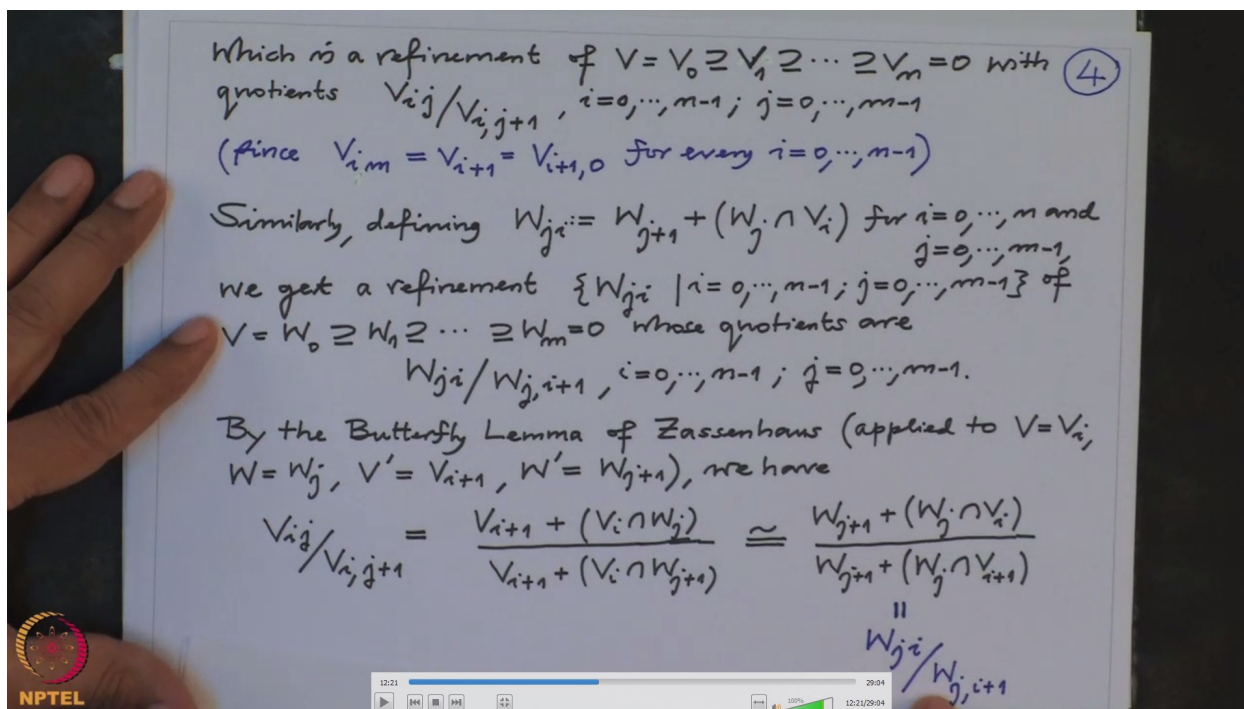 Which is a refinement of V = V₀ ⊇ V₁ ⊇ ⋯ ⊇ Vₘ = 0 with ④
quotients Vᵢⱼ/Vᵢ,ⱼ₊₁ , i=0,⋯,n-1; j=0,⋯,m-1
(Since Vᵢₘ = Vᵢ₊₁ = Vᵢ₊₁,₀ for every i=0,⋯,n-1)
Similarly, defining Wⱼᵢ := Wⱼ₊₁ + (Wⱼ ∩ Vᵢ) for i=0,⋯,n and
j=0,⋯,m-1,
we get a refinement {Wⱼᵢ | i=0,⋯,n-1; j=0,⋯,m-1} of
V = W₀ ⊇ W₁ ⊇ ⋯ ⊇ Wₘ=0 whose quotients are
Wⱼᵢ/Wⱼ,ᵢ₊₁ , i=0,⋯,n-1 ; j=0,⋯,m-1.
By the Butterfly Lemma of Zassenhaus (applied to V=Vᵢ,
W=Wⱼ, V'=Vᵢ₊₁, W'=Wⱼ₊₁), we have
Vᵢⱼ/Vᵢ,ⱼ₊₁ = (Vᵢ₊₁ + (Vᵢ ∩ Wⱼ))/(Vᵢ₊₁ + (Vᵢ ∩ Wⱼ₊₁)) ≃ (Wⱼ₊₁ + (Wⱼ ∩ Vᵢ))/(Wⱼ₊₁ + (Wⱼ ∩ Vᵢ₊₁))
=
Wⱼᵢ/Wⱼ,ᵢ₊₁
NPTEL
12:21 29:04
100% 12:21/29:04